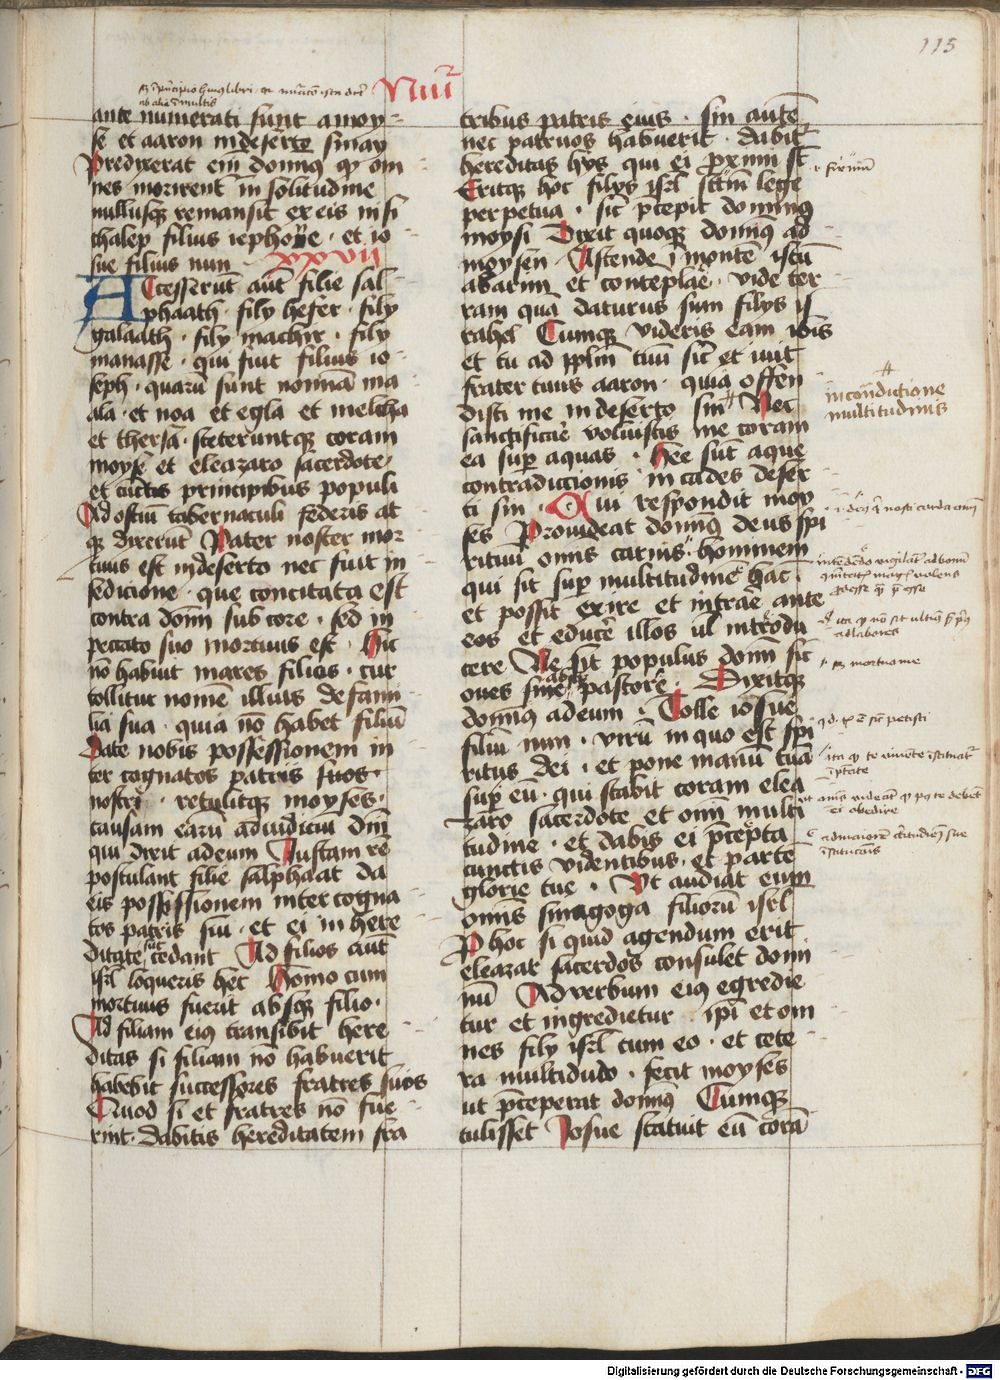 115
Nūi
ante numerati sunt a moy
se et aaron in deserto sinay
Predixerat eni dominus q om
nes morirent in solitudine
nullusque remansit ex eis nisi
chalep filius iephone · et io
sue filius nun xxvii
Accesserūt aūt filie sal
phaath · filij hefer · filij
galaath · filij machir · filij
manasse · qui fuit filius io
seph · quarū sunt nomina ma
ala · et noa et egla et melcha
et thersa · steteruntque coram
moyse et eleazaro sacerdote
et cūctis principibus populi
Ad ostiū tabernaculi federis at
que dixerūt Pater noster mor
tuus est in deserto nec fuit in
sedicione · que concitata est
contra dom̄ sub core · sed in
peccato suo mortuus est · Hic
nō habuit mares filios · cur
tollitur nomē illius de fami
lia sua · quia nō habet filiū
Date nobis possessionem in
ter cognatos patris
nostri · retulitque moyses ·
causam earū ad iudiciū dni
qui dixit ad eum Iustam rē
postulant filie salphaat da
eis possessionem inter cogna
tos patris sui · et ei in here
ditatē succedant Ad filios aūt
isrl loqueris hec Homo cum
mortuus fuerit absque filio ·
Ad filiam eius transibit here
ditas si filiam nō habuerit
habebit successores fratres suos
Quod si et fratres nō fue
rint · dabitis hereditatem fra
tribus patris eius · sin autē
nec patruos habuerit · dabit
hereditas hijs qui ei proximi st
Eritque hoc filijs isrl sctm lege
perpetua · sic precepit dominus
moysi Dixit quoque dominus ad
moysen Ascende ī montē istū
abarim et contēplare · vide ter
ram quā daturus sum filijs is
rahel Cumque videris eam ibis
et tu ad pplm tuū sic et iuit
frater tuus aaron · quia offen
disti me in deserto sin Nec
sanctificare voluistis me coram
ea super aquas · Hee sūt aque
contradictionis in cades deser
ti sin · Cui respondit moy
ses Prouideat dominus deus spi
rituū omnis carnis · hominem
qui sit super multitudinē hāc ·
et possit exire et intrare ante
eos et educere illos vl introdu
cere Ne sit populus domī sic
oues sine absque pastore · Dixitque
dominus ad eum · Tolle iosue
filiū nun · virū in quo est spi
ritus dei · et pone manū tuā
super eū · qui stabit coram elea
zaro sacerdote et omī multi
tudine · et dabis ei precepta
cunctis videntibus · et partē
glorie tue · Vt audiat eum
omnis sinagoga filiorū isrl
P hoc si quid agendum erit
eleazar sacerdos consulet domi
nū Ad verbum eius egredie
tur et ingredietur ipse et om
nes filij isrl cum eo · et cete
ra multidudo · fecit moyses
ut preceperat dominus Cumque
tulisset Iosue statuit eū corā
in contradictione
multitudinis
Digitalisierung gefördert durch die Deutsche Forschungsgemeinschaft - DFG